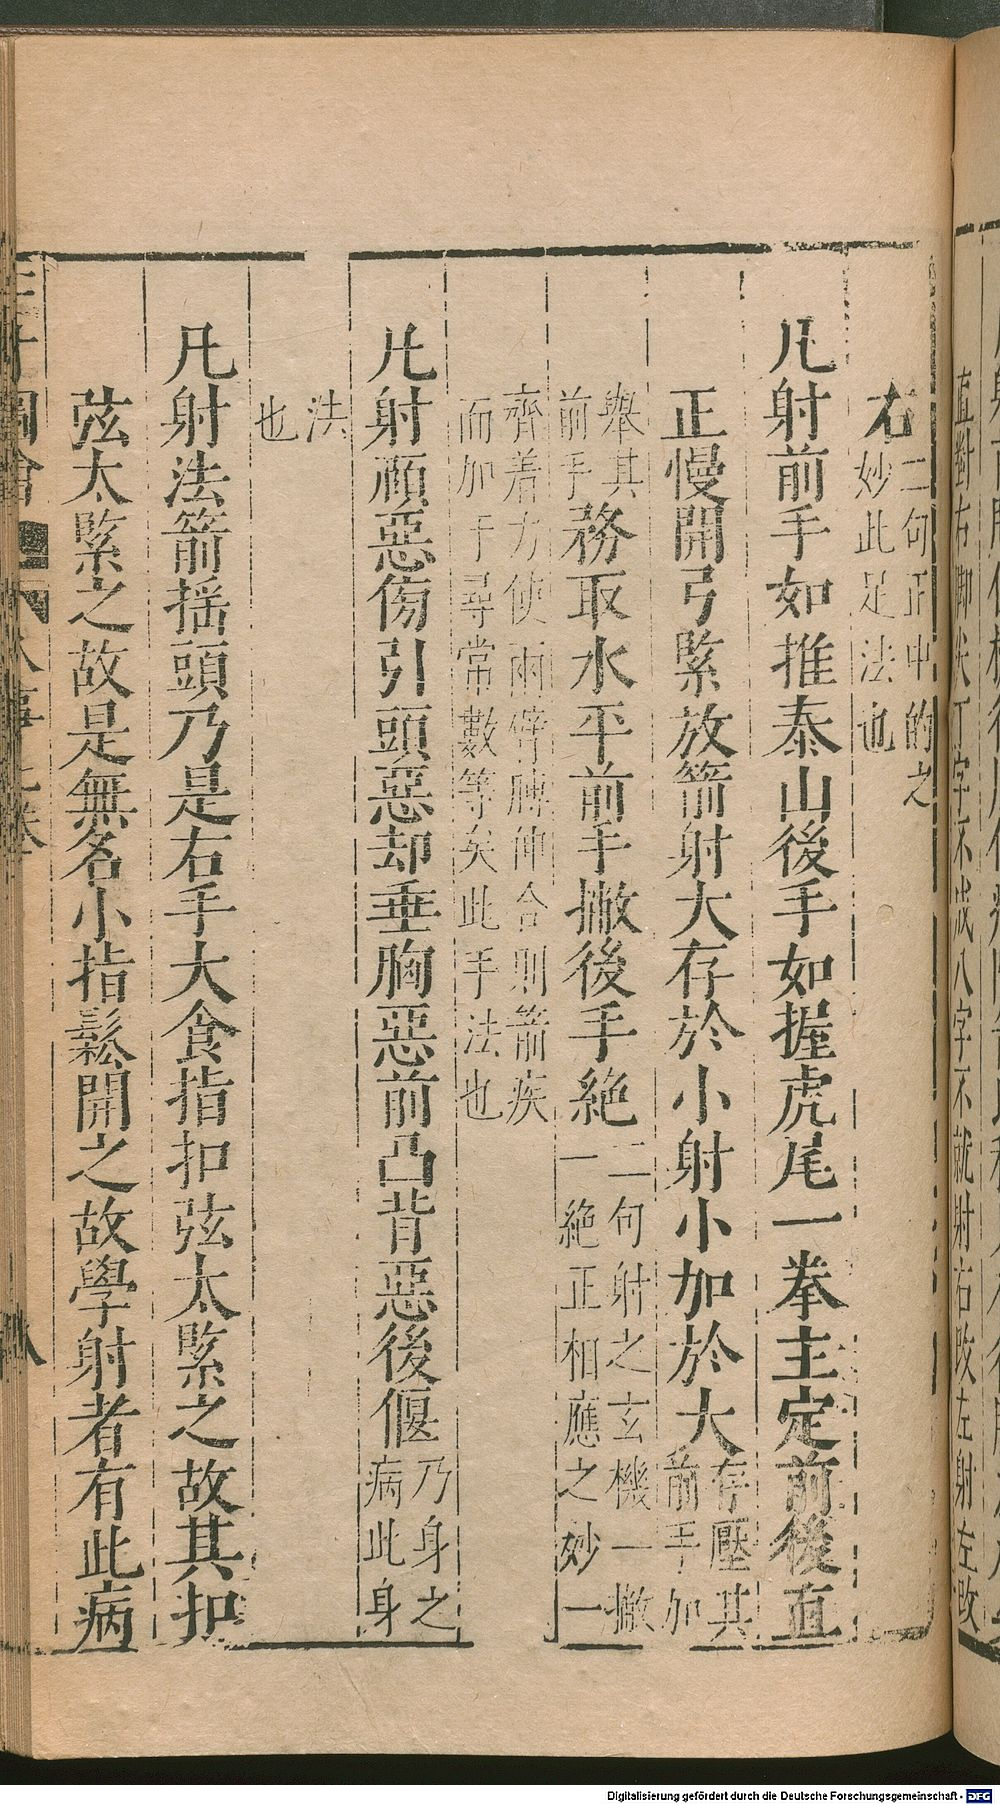 右二句正中的之妙此足法也
凡射前手如推泰山後手如握虎尾一拳主定前後直
正慢開弓緊放箭射大存於小射小加於大存壓其前手加
舉其前手務取水平前手撇後手絶二句射之玄機一撇一絶正相應之妙一
齊着力使兩停膊伸合則箭疾而加于尋常數等矣此手法也
凡射頤惡傍引頭惡却垂胸惡前凸背惡後偃乃身之病此身
法也
凡射法箭揺頭乃是右手大食指扣弦太緊之故其扣
弦太緊之故是無名小指鬆開之故學射者有此病
圖會 人事七卷 八
直對右脚尖丁字不成八字不就射右改左射左改
Digitalisierung gefördert durch die Deutsche Forschungsgemeinschaft - DFG